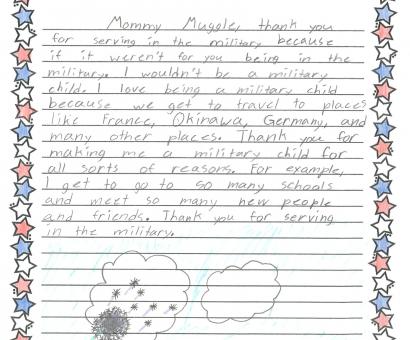 Mommy Muggle, thank you
for serving in the military because
if it weren't for you being in the
military. I wouldn't be a military
child. I love being a military child
because we get to travel to places
like France, Okinawa, Germany, and
many other places. Thank you for
making me a military child for
all sorts of reasons. For example,
I get to go to so many schools
and meet so many new people
and friends. Thank you for serving
in the military.